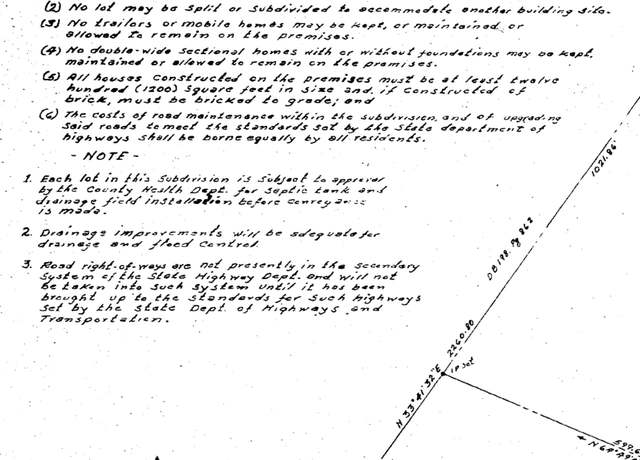 (2) No lot may be split or subdivided to accommodate another building site.
(3) No trailers or mobile homes may be kept, or maintained or
allowed to remain on the premises.
(4) No double-wide sectional homes with or without foundations may be kept,
maintained or allowed to remain on the premises.
(5) All houses constructed on the premises must be at least twelve
hundred (1200) square feet in size and, if constructed of
brick, must be bricked to grade; and
(6) The costs of road maintenance within the subdivision, and of upgrading
said roads to meet the standards set by the State department of
highways shall be borne equally by all residents.
- NOTE -
1. Each lot in this Subdivision is subject to approval
by the County Health Dept. for septic tank and
drainage field installation before conveyance
is made.
2. Drainage improvements will be adequate for
drainage and flood control.
3. Road right-of-ways are not presently in the secondary
system of the State Highway Dept. and will not
be taken into such system until it has been
brought up to the standards for such highways
set by the State Dept. of Highways and
Transportation.
1021.86'
DB 198, Pg 862
2260.80
N 33° 41' 32" E
IP Set